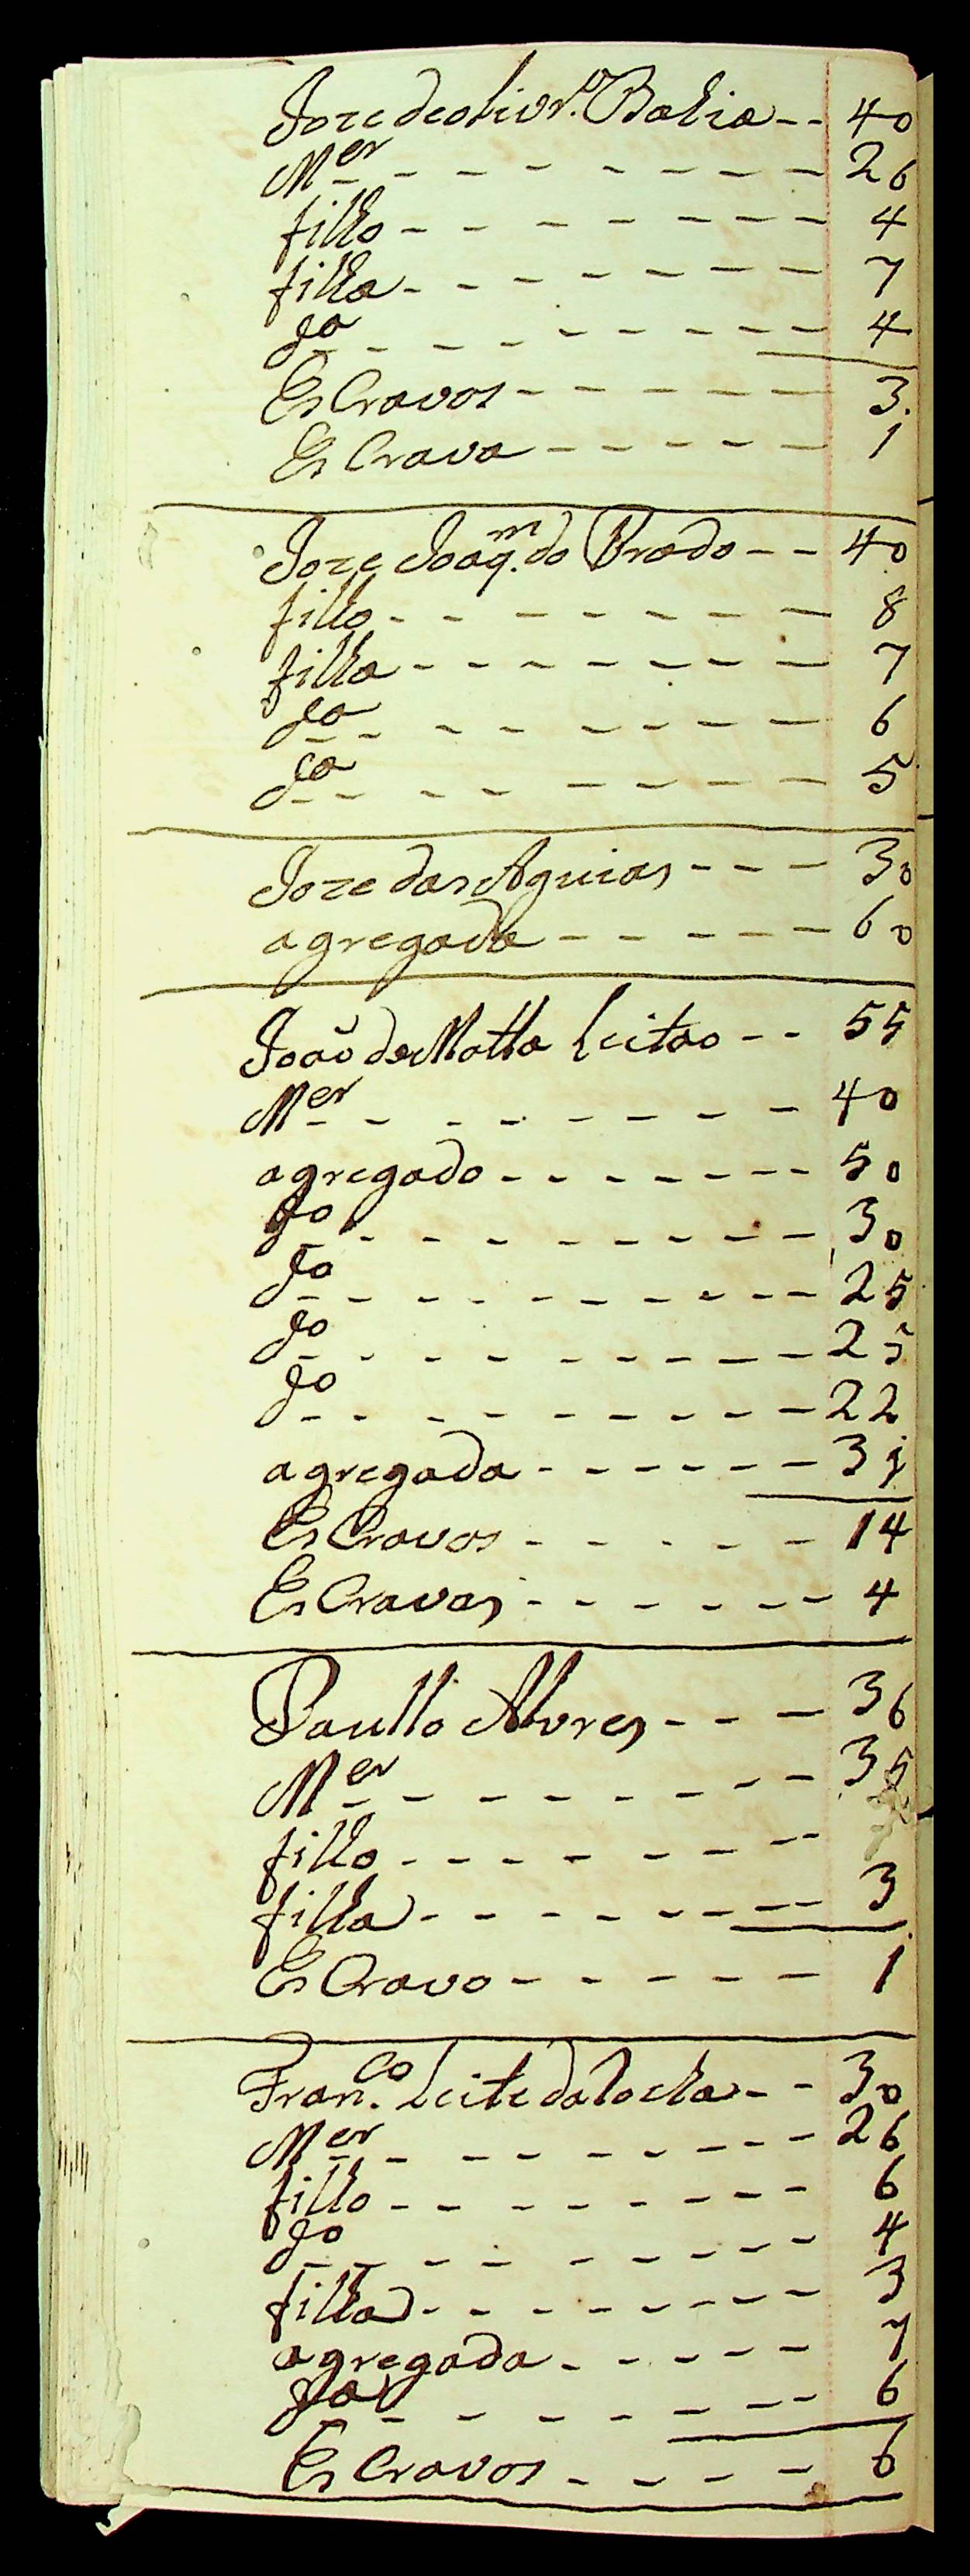 Joze de olivr.ª Bahia -- 40
Mer - - - - - - - - 26
filho - - - - - - - - 4
filha - - - - - - - - 7
Ja - - - - - - - - 4
EsCravos - - - - - - 3.
EsCrava - - - - - 1
Joze Joaq.m do Prado -- 40
filho - - - - - - - - 8
filha - - - - - - - - 7
Ja - - - - - - - - 6
Ja - - - - - - - - 5
Joze das Aguias - - - 30
agregada - - - - - 60
João da Motta Leitao -- 55
Mer - - - - - - - - 40
agregado - - - - - - - 50
Jo - - - - - - - - - 30
Jo - - - - - - - - - 25
Jo - - - - - - - - - 25
Jo - - - - - - - - - 22
agregada - - - - - - 31
EsCravos - - - - - 14
EsCravas - - - - - - 4
Paullo Alvres - - - 36
Mer - - - - - - - - 35
filho - - - - - - - -
filha - - - - - - - - 3
EsCravo - - - - - - 1
Fran.co Leite da Rocha -- 30
Mer - - - - - - - - 26
filho - - - - - - - - 6
Jo - - - - - - - - 4
filha - - - - - - - - 3
agregada - - - - - 7
Ja - - - - - - - - 6
EsCravos - - - - 6